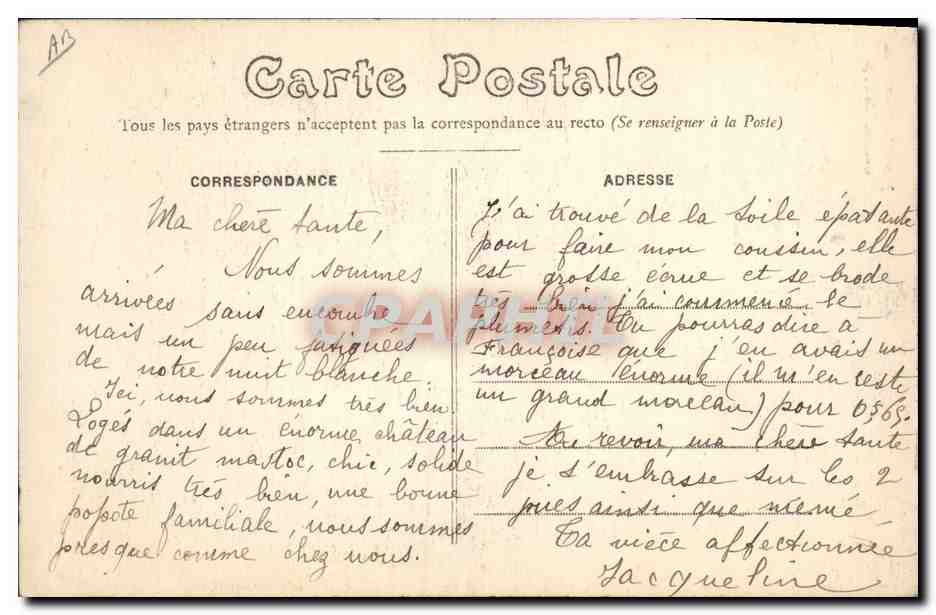 AB
Carte Postale
Tous les pays étrangers n'acceptent pas la correspondance au recto (Se renseigner à la Poste)
CORRESPONDANCE
Ma chère tante,
Nous sommes
arrivées sans encombre
mais un peu fatiguées
de notre nuit blanche.
Ici, nous sommes très bien.
Logés dans un énorme château
de granit mastoc, chic, solide
nourris très bien, une bonne
popote familiale, nous sommes
presque comme chez nous.
ADRESSE
J'ai trouvé de la toile épatante
pour faire mon coussin, elle
est grosse écrue et se brode
très bien j'ai commencé le
plumetis. Tu pourras dire à
Françoise que j'en avais un
morceau énorme (il m'en reste
un grand morceau) pour 0f65.
Au revoir, ma chère tante
je t'embrasse sur les 2
joues ainsi que mémé
Ta nièce affectionnée
Jacqueline
CPARAMA